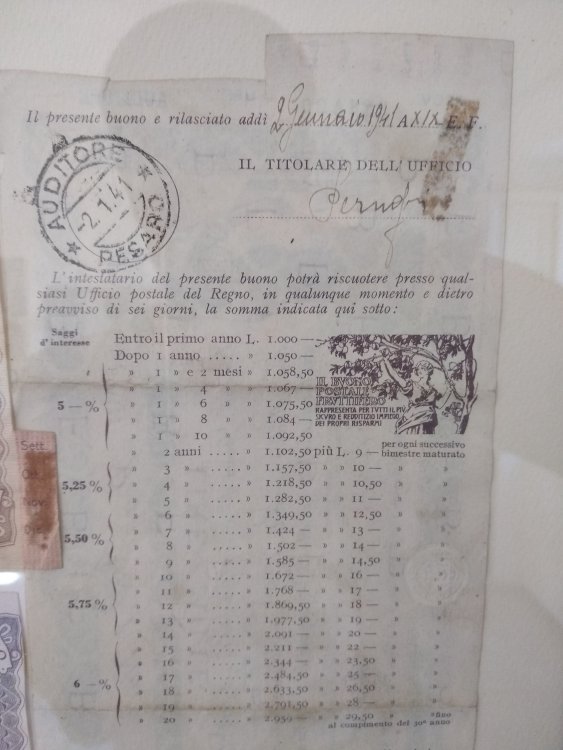 Il presente buono e rilasciato addì 2 Gennaio 1941 A XIX E. F.
IL TITOLARE DELL'UFFICIO
AUDITORE
-2.1.41
PESARO
L'intestatario del presente buono potrà riscuotere presso qual-
siasi Ufficio postale del Regno, in qualunque momento e dietro
preavviso di sei giorni, la somma indicata qui sotto:
Saggi
d'interesse
Entro il primo anno L. 1.000 —
Dopo 1 anno ..... » 1.050 —
» 1 » e 2 mesi » 1.058,50
» 1 » 4 » » 1.067 —
5 — % » 1 » 6 » » 1.075,50
» 1 » 8 » » 1.084 —
» 1 » 10 » » 1.092,50
IL BUONO
POSTALE
FRUTTIFERO
RAPPRESENTA PER TUTTI IL PIV
SICVRO E REDDITIZIO IMPIEGO
DEI PROPRI RISPARMI
» 2 anni ..... » 1.102,50 più L. 9 — per ogni successivo bimestre maturato
» 3 » ..... » 1.157,50 » » 10 — » »
5,25 % » 4 » ..... » 1.218,50 » » 10,50 » »
» 5 » ..... » 1.282,50 » » 11 — » »
» 6 » ..... » 1.349,50 » » 12,50 » »
5,50 % » 7 » ..... » 1.424 — » » 13 — » »
» 8 » ..... » 1.502 — » » 14 — » »
» 9 » ..... » 1.585 — » » 14,50 » »
» 10 » ..... » 1.672 — » » 16 — » »
» 11 » ..... » 1.768 — » » 17 — » »
5,75 % » 12 » ..... » 1.869,50 » » 18 — » »
» 13 » ..... » 1.977,50 » » 19 — » »
» 14 » ..... » 2.091 — » » 20 — » »
» 15 » ..... » 2.211 — » » 22 — » »
» 16 » ..... » 2.344 — » » 23,50 » »
6 — % » 17 » ..... » 2.484,50 » » 25 — » »
» 18 » ..... » 2.633,50 » » 26,50 » »
» 19 » ..... » 2.791,50 » » 28 — » »
» 20 » ..... » 2.959 — » » 29,50 » » fino
al compimento del 30° anno
Sett.
Nov.